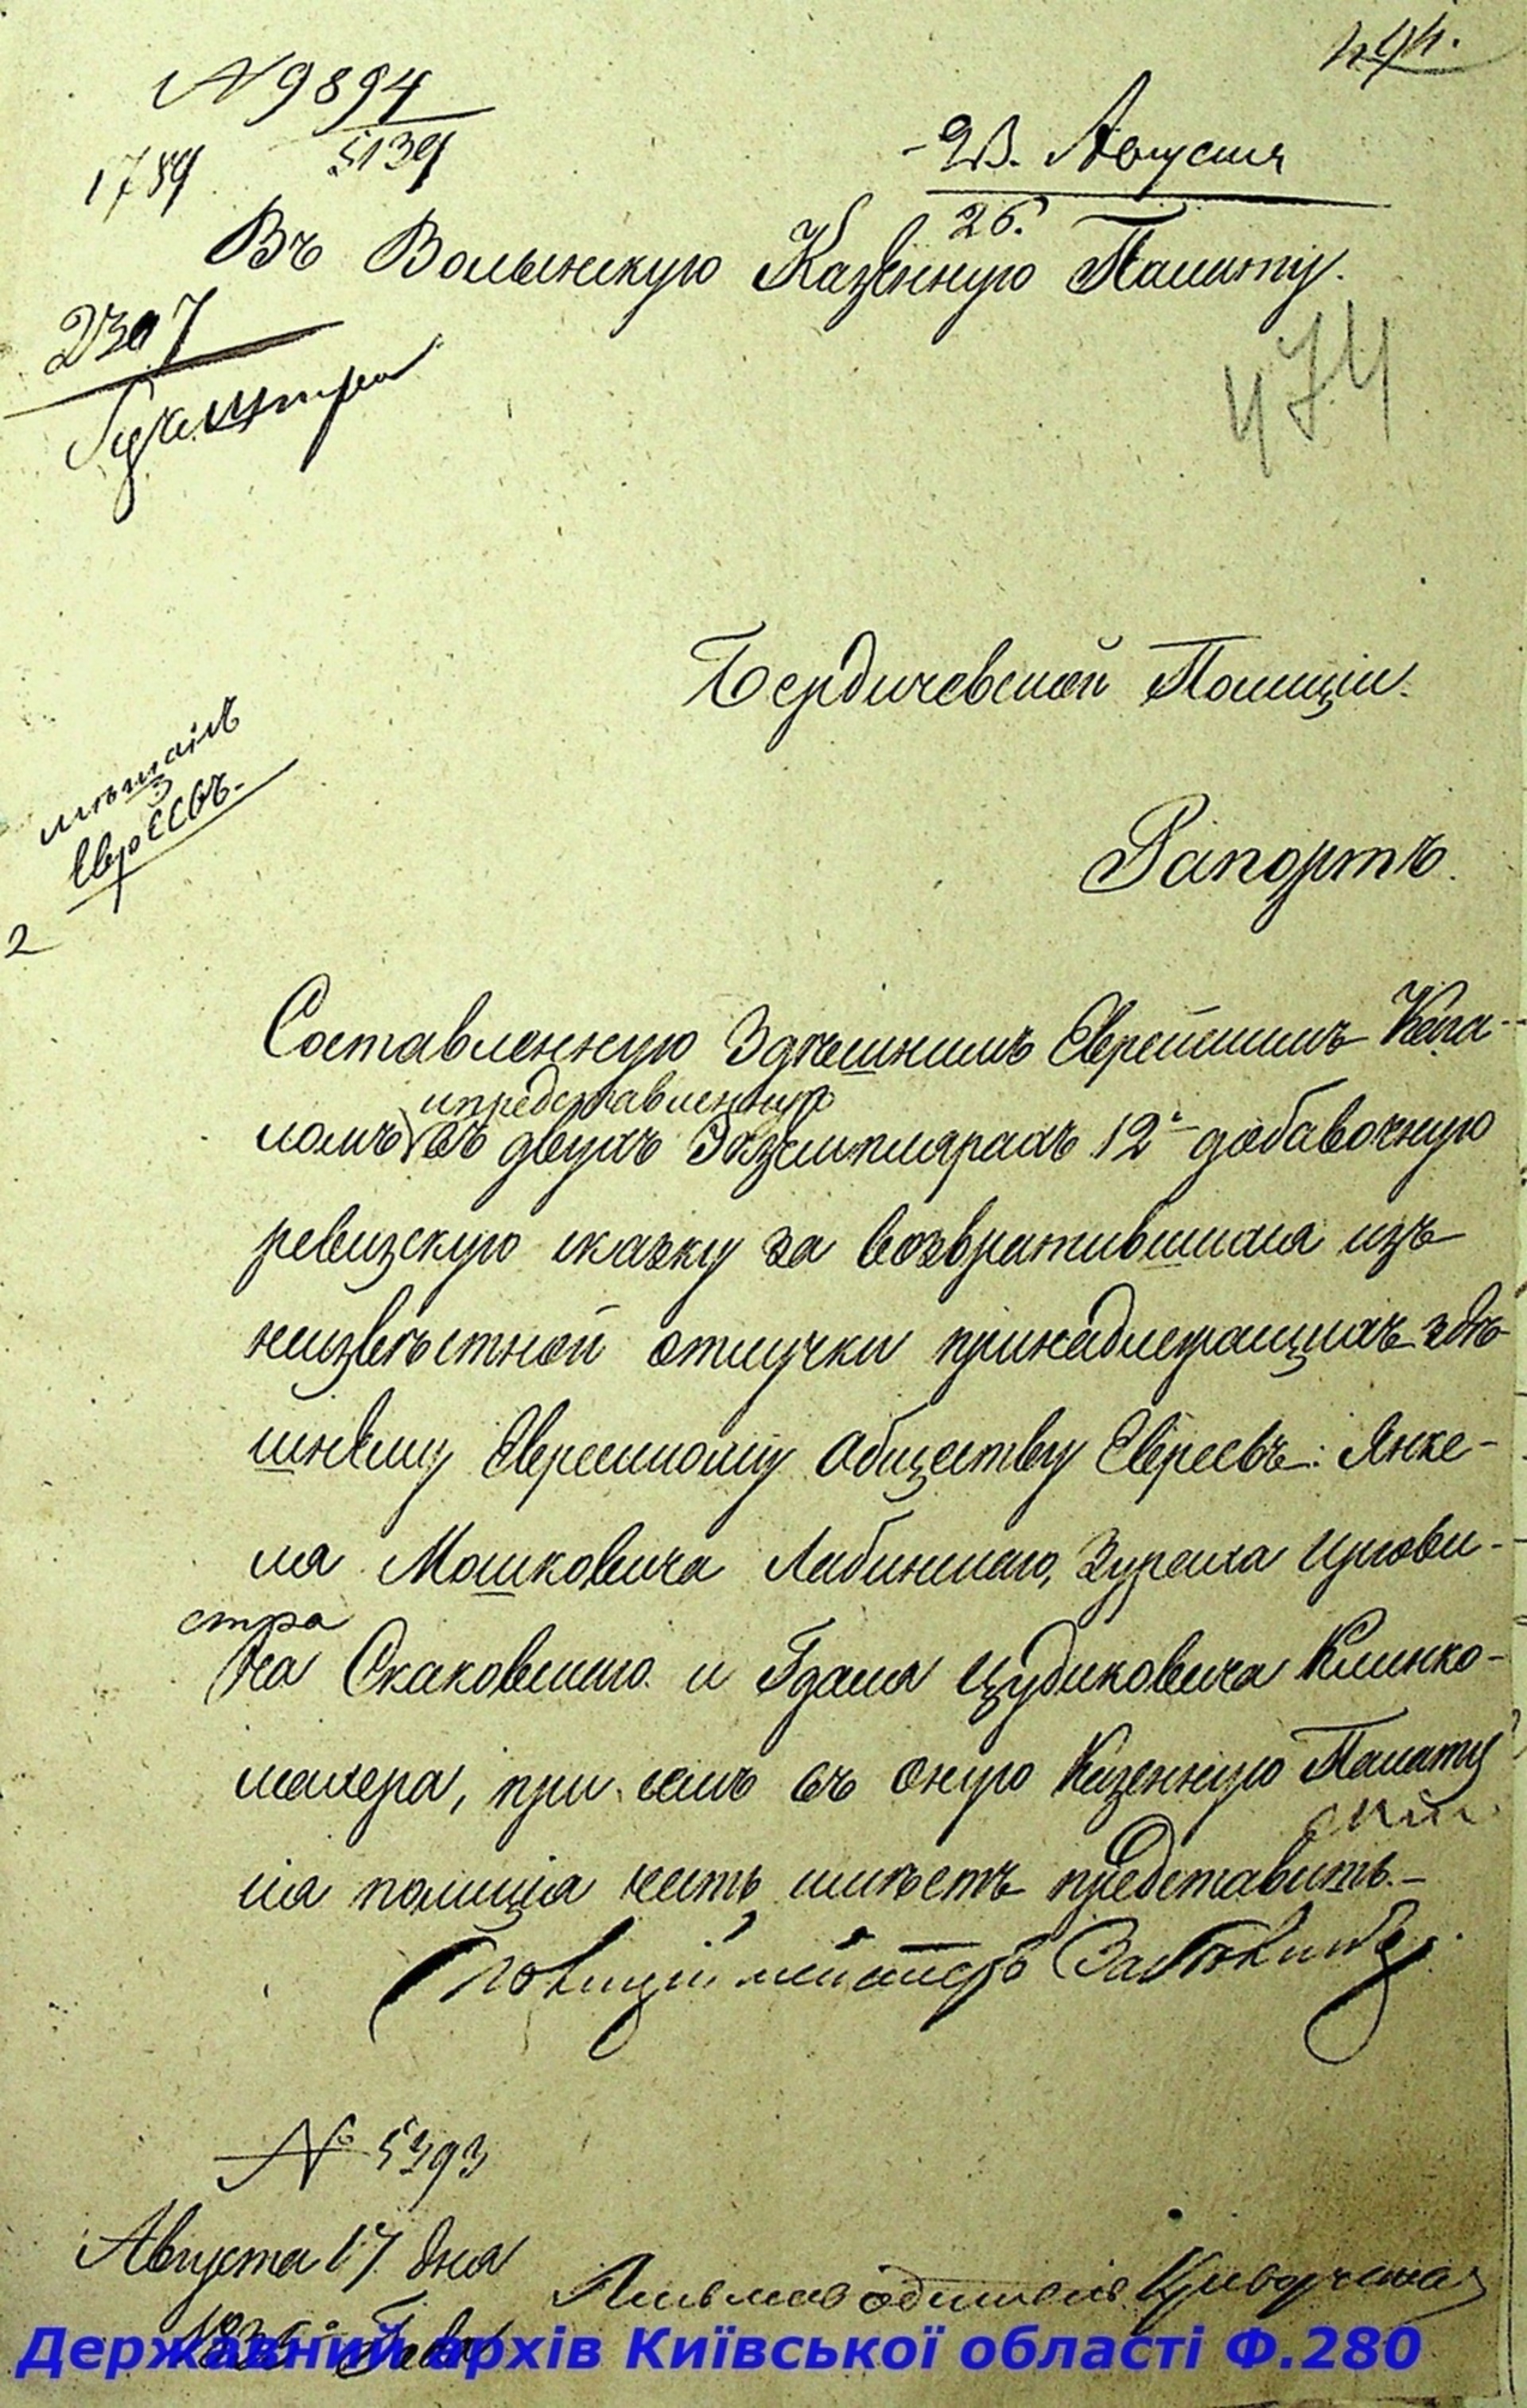 N 9894
5139
1789
23. Августа
26.
Въ Волынскую Казенную Палату.
2307
474
Бердичевской Полиціи.
мѣщанъ
Евреевъ.
2
Рапортъ.
Составленную Здѣшнимъ Еврейскимъ Кага-
и представленную
ломъ въ двухъ Экземплярахъ 12ю добавочную
ревизскую скаску за возвратившихся изъ
неизвѣстной отлучки принадлежащихъ здѣ-
шнему Еврейскому Обществу Евреевъ: Янке-
ля Мошковича Лабинскаго,
ка Скаковскаго и Гдаля Цудиковича Клинко-
махера, при семъ въ оную Казенную Палату
сія полиція честь имѣетъ представить.-
Полиціймейстеръ
№ 5393
Августа 17 дня
Письмоводитель
Державний архів Київської області Ф.280